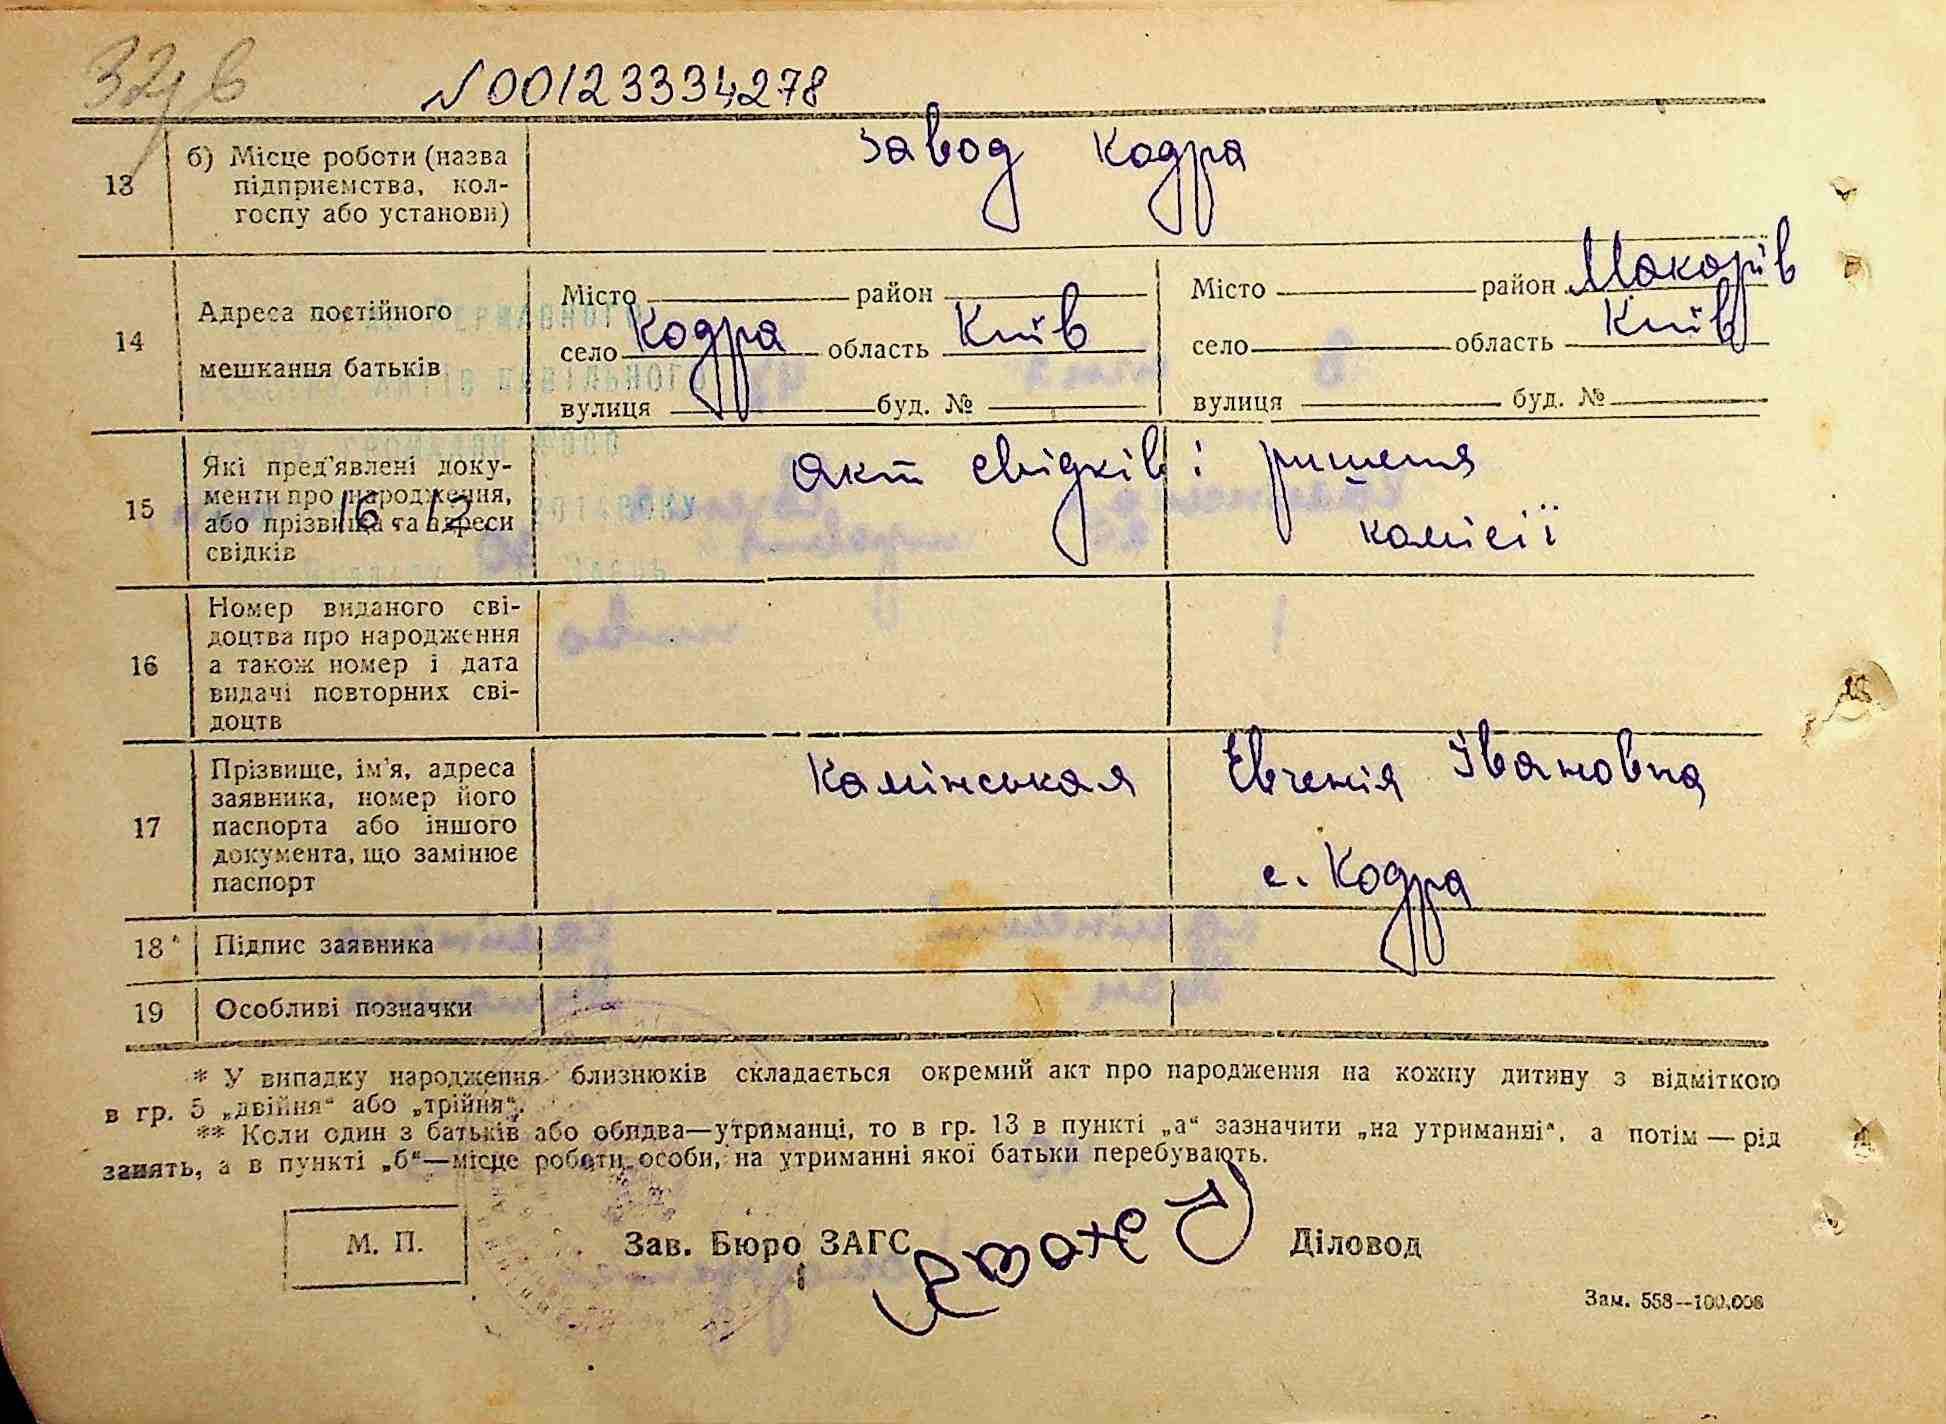 32 в
№00123334278
13 б) Місце роботи (назва підприємства, колгоспу або установи) завод Кодра
14 Адреса постійного мешкання батьків
Місто район Місто район Макарів
село Кодра область Київ село область Київ
вулиця буд. № вулиця буд. №
15 Які пред'явлені документи про народження, або прізвища та адреси свідків
16 12
акт свідків і ришення
комісії
16 Номер виданого свідоцтва про народження а також номер і дата видачі повторних свідоцтв
17 Прізвище, ім'я, адреса заявника, номер його паспорта або іншого документа, що замінює паспорт
Камінськая Евгенія Івановна
с. Кодра
18 Підпис заявника
19 Особливі позначки
* У випадку народження близнюків складається окремий акт про народження на кожну дитину з відміткою
в гр. 5 „двійня“ або „трійня“.
** Коли один з батьків або обидва—утриманці, то в гр. 13 в пункті „а“ зазначити „на утриманні“, а потім — рід
занять, а в пункті „б“—місце роботи особи, на утриманні якої батьки перебувають.
М. П. Зав. Бюро ЗАГС Діловод
Зам. 558—100.000